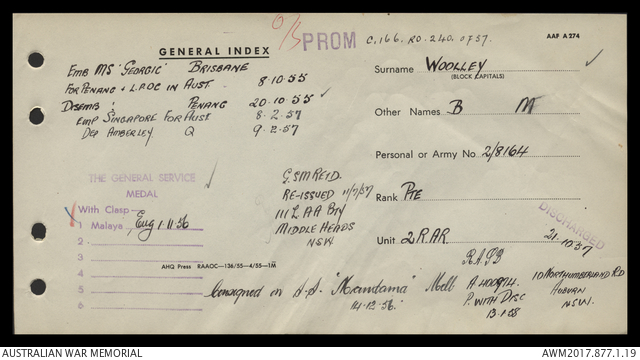 O/S PROM C.166. RO. 240. OF 57.
AAF A 274
GENERAL INDEX
Emb MS "GEORGIC" BRISBANE
For PENANG + L.POC IN AUST. 8.10.55
Disemb: PENANG 20.10.55
Emp SINGAPORE FOR AUST 8.2.57
Dep AMBERLEY Q 9.2.57
Surname WOOLLEY
(BLOCK CAPITALS)
Other Names B M
Personal or Army No 2/8164
Rank Pte
Unit 2 RAR
DISCHARGED
21.10.57
THE GENERAL SERVICE
MEDAL
With Clasp
1 Malaya Eng 1.11.56
2.
3
4
5
6
GSM REID.
RE-ISSUED 11/7/57
111 L AA Bty
MIDDLE HEADS
NSW.
AHQ Press RAAOC—136/55—4/55—1M
Consigned on S.S. "Mandama" Melb
14.12.56.
P. WITH DISC
13.1.58
10 NORTHUMBERLAND RD
AUBURN
N.S.W.
AUSTRALIAN WAR MEMORIAL
AWM2017.877.1.19